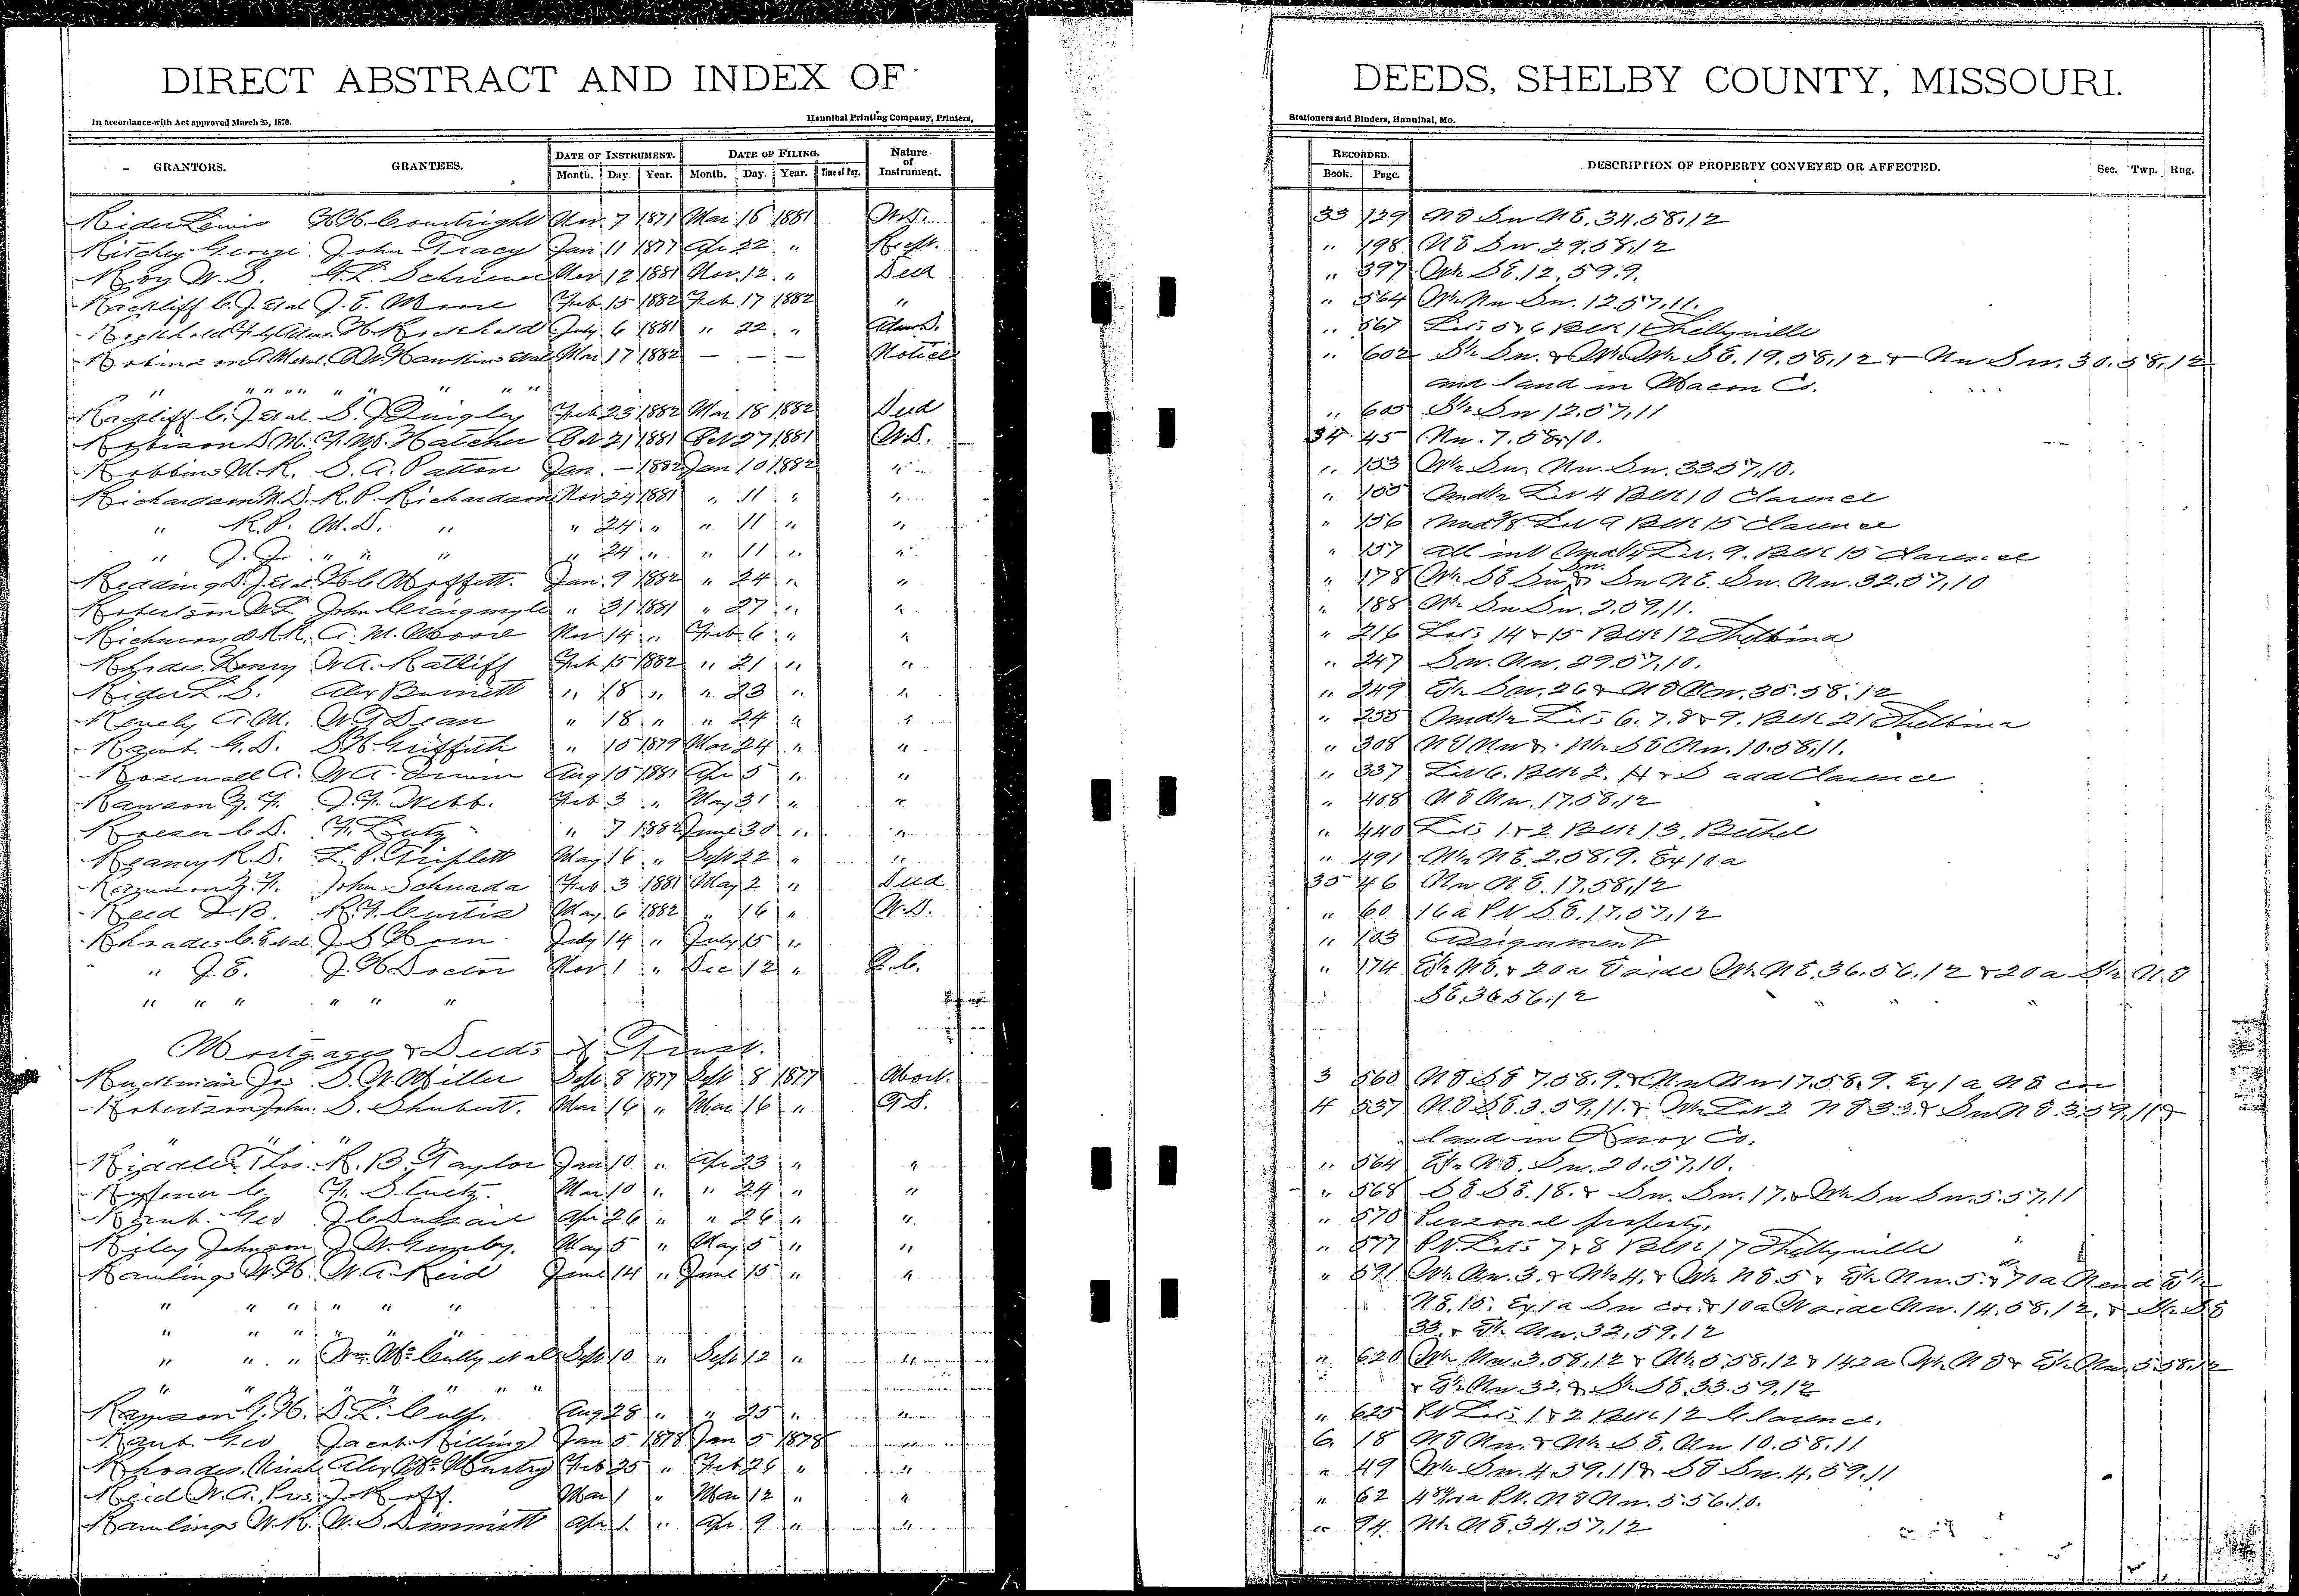 DIRECT ABSTRACT AND INDEX OF
In accordance with Act approved March 25, 1870.
Hannibal Printing Company, Printers,
GRANTORS. GRANTEES. DATE OF INSTRUMENT. DATE OF FILING. Nature of Instrument.
Month. Day. Year. Month. Day. Year. Time of Day.
Rider Lewis Courtright Nov. 7 1871 Mar 16 1881 W.D.
Ritchey George John Tracy Jan 11 1877 Apr 22 "
Roy W. S. Nov 12 1881 Nov. 12 " Deed
Rackliff C. J. et al J. E. Moore Feb. 15 1882 Feb 17 1882 "
July 6 1881 " 22 "
Hawkins et al Mar 17 1882 — — — Notice
" " " " " " " " "
Rackliff C. J. et al S. J. Quigley Feb 23 1882 Mar 18 1882 Deed
Robison Hatcher Oct 21 1881 Oct 27 1881 W.D.
Robbins M. R. S. A. Patton Jan. — 1882 Jan 10 1882 "
Richardson M. D. R. P. Richardson Nov 24 1881 " 11 " "
" R. P. M. D. " " 24 " " 11 " "
" J. J. " " " " 24 " " 11 " "
Redding Moffett. Jan. 9 1882 " 24 " "
Robertson John Craigmyle " 31 1881 " 27 " "
Richmond R. R. A. M. Moore Nov 14 " Feb. 6 " "
Rhodes Henry W. A. Ratliff Feb 15 1882 " 21 " "
Rider L. S. Alex Burnett " 18 " " 23 " "
A. M. Dean " 18 " " 24 " "
Raub. G. D. Griffith " 15 1879 Mar 24 " "
W. A. Irwin Aug 15 1881 Apr 5 " "
J. F. Webb. Feb 3 " May 31 " "
C. D. F. Lutz " 7 1882 June 30 " "
R. D. L. P. Triplett May 16 " Sept 22 " "
John Schwada Feb 3 1881 May 2 " Deed
Reed R. F. Curtis May 6 1882 " 16 " W.D.
Rhoades C. E. et al J. S. July 14 " July 15 "
" J. E. J. H. Doctor Nov. 1 " Dec 12 " Q.C.
" " " " " "
Mortgages & Deeds of Trust.
Ruckman Jas S. W. Miller Sept 8 1877 Sept 8 1877 Mort.
Robertson John S. Shubert. Mar 16 " Mar 16 "
" " "
Riddle Thos. R. B. Taylor Jan 10 " Apr 23 " "
Mar 10 " " 24 " "
Raub. Geo Apr 26 " " 26 " "
Riley Johnson May 5 " May 5 " "
Rawlings W. H. W. A. Reid June 14 " June 15 " "
" " " " " "
" " " " " "
" " " Wm. McCully et al Sept 10 " Sept 12 " "
" " " " " " "
Aug 28 " " 25 " "
Raub. Geo Jacob Killing Jan 5 1878 Jan 5 1878 "
Rhoades Uriah Alex McMurtry Feb 25 " Feb 26 " "
Reid W. A. Pres. Mar 1 " Mar 12 " "
Rawlings W. R. W. S. Dimmitt Apr 1 " Apr 9 " "
DEEDS, SHELBY COUNTY, MISSOURI.
Stationers and Binders, Hannibal, Mo.
RECORDED. DESCRIPTION OF PROPERTY CONVEYED OR AFFECTED. Sec. Twp. Rng.
Book. Page.
33 129 NE Sw NE. 34.58.12
" 198 NE Sw. 29.58.12
" 397 W½ SE. 12.59.9.
" 564 W½ Nw Sw. 12.57.11.
" 567 Lots 5 & 6 Blk 1 Shelbyville
" 602 S½ Sw. & W½ W½ SE. 19.58.12 & Nw Sw. 30.58.12
and land in Macon Co.
" 605 S½ Sw 12.57.11
34 45 Nw. 7.58.10.
" 153 W½ Sw. Nw. Sw. 33.57.10.
" 155 Und½ Lot 4 Blk 10 Clarence
" 156 Lot 9 Blk 15 Clarence
" 157 all int Lot. 9. Blk 15 Clarence
" 178 W½ SE Sw & Sw NE. Sw. Nw. 32.57.10
" 188 W½ Sw Sw. 2.59.11.
" 216 Lots 14 & 15 Blk 12 Shelbina
" 247 Sw. Nw. 29.57.10.
" 249 E½ Sw. 26 & NE Nw. 35.58.12
" 255 Und½ Lots 6. 7. 8 & 9. Blk 21 Shelbina
" 308 NE Nw & N½ SE Nw. 10.58.11.
" 337 Lot 6. Blk 2. H & S add Clarence
" 408 NE Nw. 17.58.12
" 440 Lots 1 & 2 Blk 13, Bethel
" 491 N½ NE. 2.58.9. Ex 10a
35 46 Nw NE. 17.58.12
" 60 16a Pt SE. 17.57.12
" 103 Assignment
" 174 E½ NE. & 20a E side W½ NE. 36.56.12 & 20a S½ NE
SE. 36.56.12
3 560 NE SE 7.58.9. & Nw Nw 17.58.9. Ex 1a NE cor
4 537 NE SE. 3.59.11. & W½ Lot 2 NE 33. & Sw NE 3.59.11 &
land in Knox Co.
" 564 E½ NE. Sw. 20.57.10.
" 568 SE SE. 18. & Sw. Sw. 17. & W½ Sw Sw. 5.57.11
" 570 Personal property.
" 577 Pt. Lots 7 & 8 Blk 17 Shelbyville
" 591 W½ Nw. 3. & N½ 4. & W½ NE 5 & E½ Nw. 5. & 70a N end E½
NE. 15. Ex 1a Sw cor. & 10a W side Nw. 14.58.12. & S½ SE
33. & E½ Nw. 32.59.12
" 620 W½ Nw. 3.58.12 & N½ 5.58.12 & 142a W½ NE & E½ Nw. 5.58.12
& E½ Nw 32. & S½ SE. 33.59.12
" 625 Pt Lots 1 & 2 Blk 12 Clarence.
6. 18 NE Nw. & N½ SE. Nw 10.58.11
" 49 W½ Sw. 4.59.11 & SE Sw. 4.59.11
" 62 Pt. NE Nw. 5.56.10.
" 94 N½ NE. 34.57.12